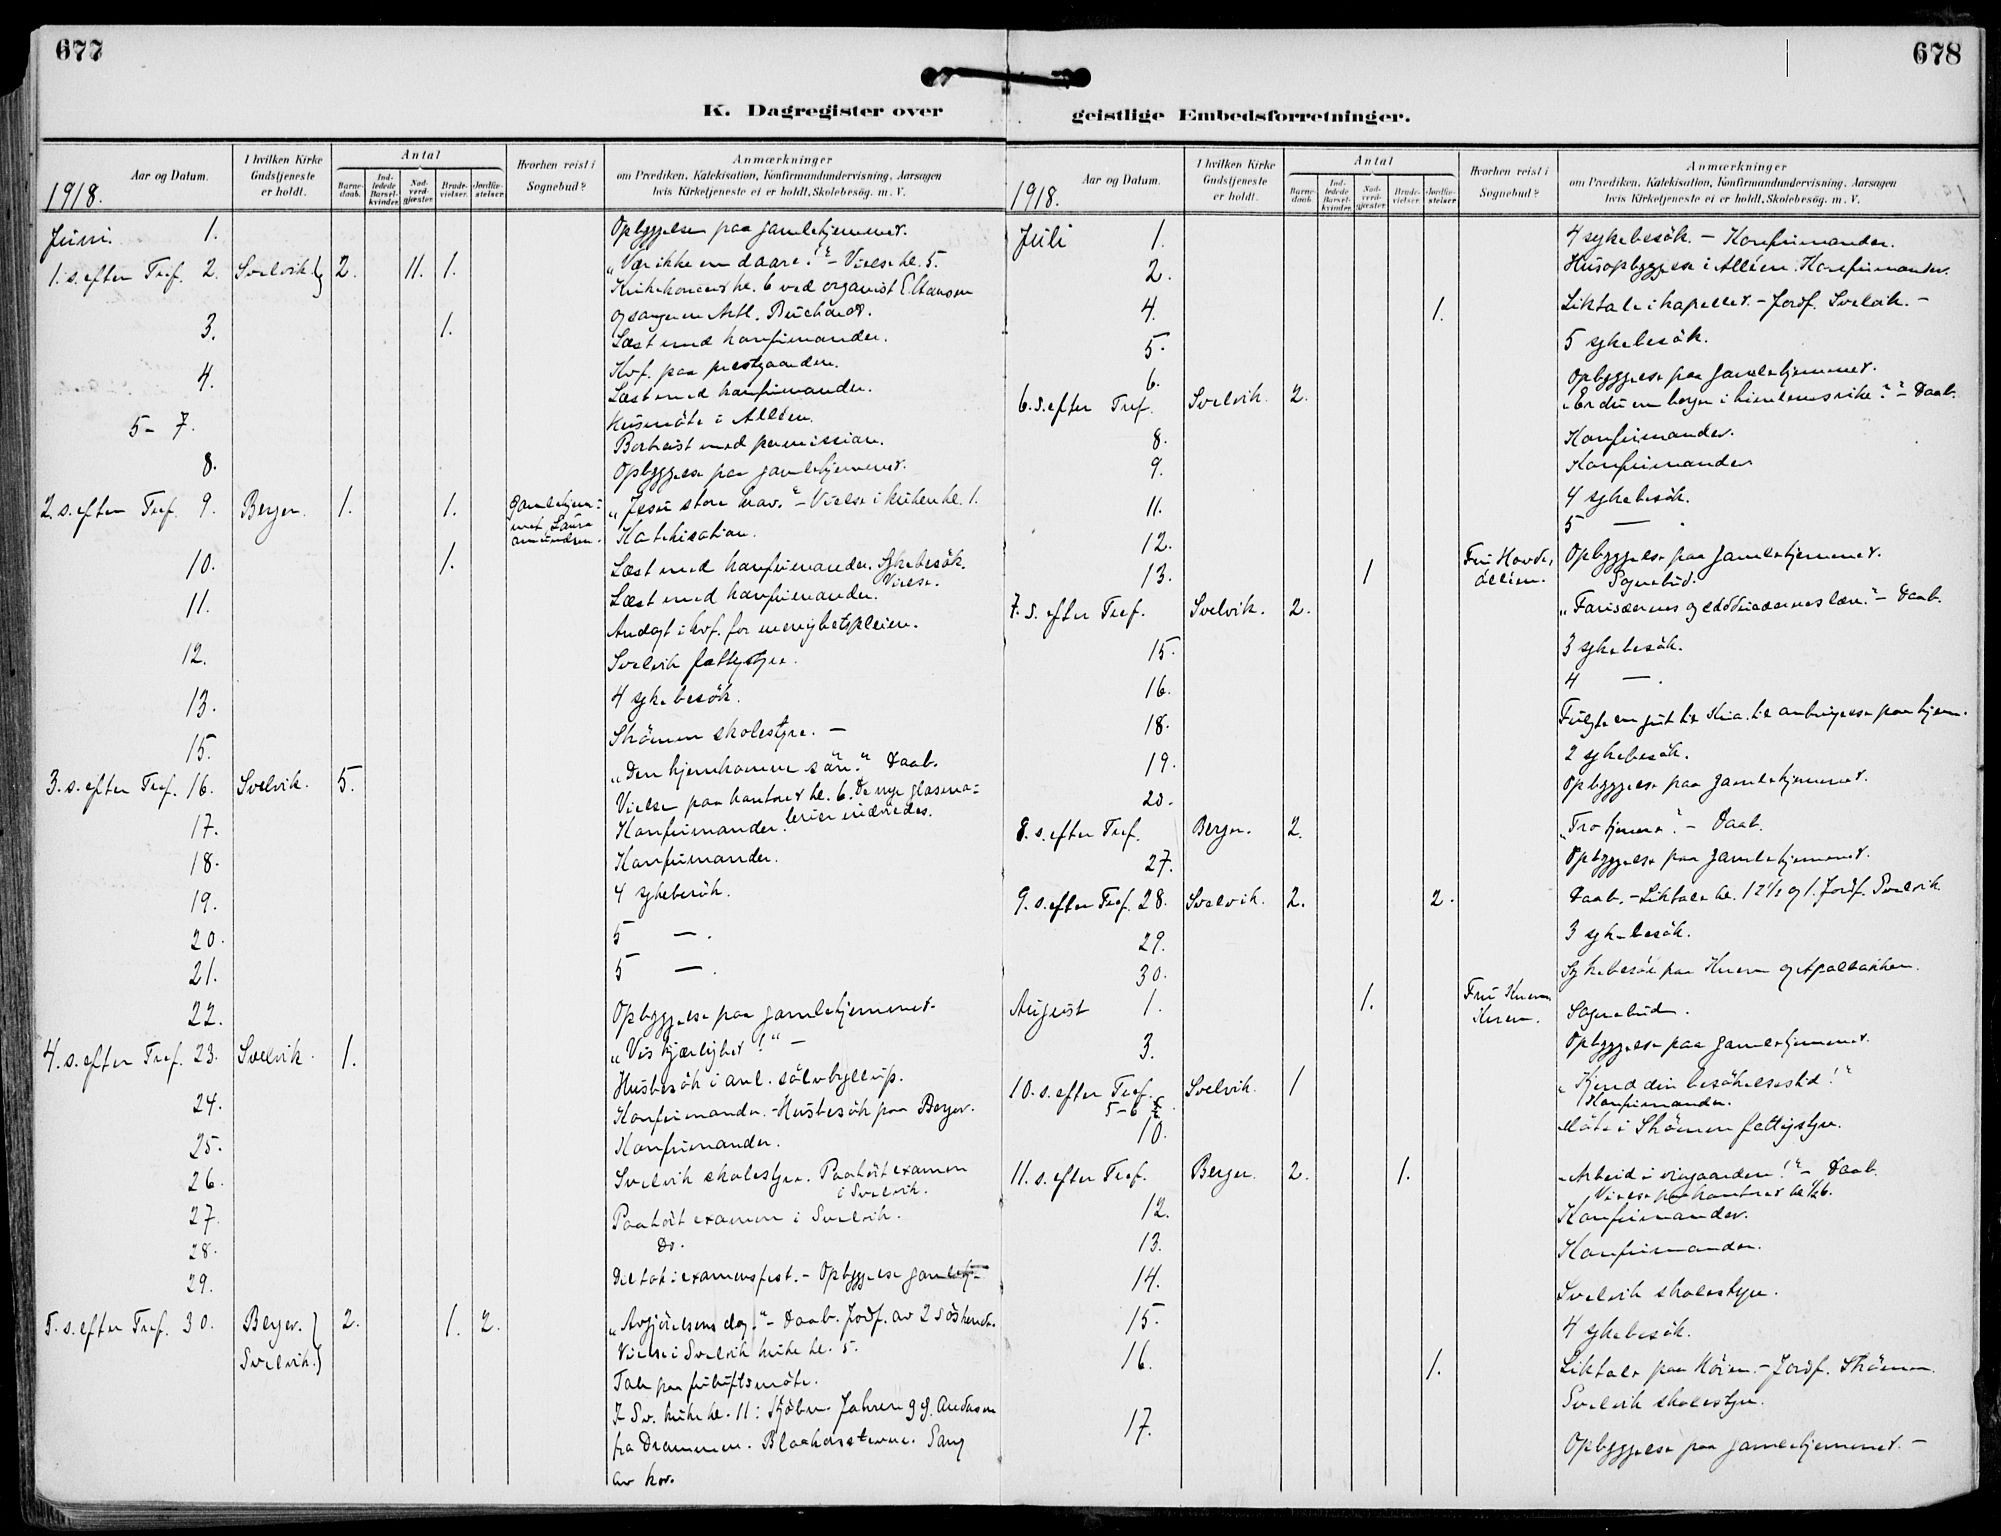 677
K. Dagregister over
Aar og Datum.
I hvilken Kirke Gudstjeneste er holdt.
Antal
Barne-daab.
Ind-ledede Barsel-kvinder.
Nad-verd-gjæster.
Brude-vielser.
Jordfæ-stelser.
Hvorhen reist i Sognebud?
Anmærkninger
om Prædiken, Katekisation, Konfirmandundervisning, Aarsagen
hvis Kirketjeneste ei er holdt, Skolebesøg. m. V.
1918.
Juni. 1. Opbyggelse paa gamlehjemmet.
1. s. efter Tref. 2. Svelvik. 2. 11. 1. "Vær ikke en daare!" - Vielse kl. 5.
Kirkekoncert kl. 6 ved organist E. Hansen
og sangeren
3. 1. Læst med konfirmander.
Kvf. paa prestgaarden.
4. Læst med konfirmander.
Husmöte i Alléen.
5- 7. Bortreist med permission.
8. Opbyggelse paa gamlehjemmet.
2. s. efter Tref. 9. Berger. 1. 1. Gamlehjem-met Laura Amundsen. "Jesu store nav." - Vielse i kirken kl. 1.
Katekisation.
10. 1. Læst med konfirmander. Sykebesök.
Vielse.
11. Læst med konfirmander.
Andagt i kvf. for menighetspleien.
12. Svelvik fattigstyre.
13. 4 sykebesök.
15. Strömm skolestyre. -
3. s. efter Tref. 16. Svelvik. 5. "Den hjemkomne sön." Daab.
Vielse paa kontoret kl. 6. De nye glasma-
lerier indviedes.
17. Konfirmander.
18. Konfirmander.
19. 4 sykebesök.
20. 5 - .
21. 5 - .
22. Opbyggelse paa gamlehjemmet.
4. s. efter Tref. 23. Svelvik. 1. "Vis kjærlighet!" -
Husbesök i anl. sölvbryllup.
24. Konfirmander. - Husbesök paa Berger.
25. Konfirmander.
26. Svelvik skolestyre. Paahört examen
i Svelvik.
27. Paahört examen i Svelvik.
28. Do.
29. Deltok i examensfest. - Opbyggelse gamlehj-
5. s. efter Tref. 30. Berger. Svelvik. 2. 1. 2. "Avgjörelsens dag." - Daab. Jordf. av 2 söskende.
Vielse i Svelvik kirke kl. 5.
Tale paa friluftsmöte.
I Sv. kirke kl. 11: Andersen
fra Drammen. Sang
av kor.
678
geistlige Embedsforretninger.
Aar og Datum.
I hvilken Kirke Gudstjeneste er holdt.
Antal
Barne-daab.
Ind-ledede Barsel-kvinder.
Nad-verd-gjæster.
Brude-vielser.
Jordfæ-stelser.
Hvorhen reist i Sognebud?
Anmærkninger
om Prædiken, Katekisation, Konfirmandundervisning, Aarsagen
hvis Kirketjeneste ei er holdt, Skolebesög. m. V.
1918.
Juli 1. 4 sykebesök. - Konfirmander.
2. Husopbyggelse i Alléen. Konfirmander.
4. 1. Liktale i kapellet. - Jordf. Svelvik. -
5. 5 sykebesök.
6. Opbyggelse paa gamlehjemmet.
6. s. efter Tref. Svelvik. 2. "Er du en borger i himlens rike?" - Daab.
8. Konfirmander.
9. Konfirmander
11. 4 sykebesök.
12. 5 - .
13. 1 Fru Alléen. Opbyggelse paa gamlehjemmet.
Sognebud.
7. s. efter Tref. Svelvik. 2. "Farisæernes og Saddukæernes lære." - Daab.
15. 3 sykebesök.
16. 4 - .
18. Fulgte en gut til Kria. til anbringelse paa hjem.
19. 2 sykebesök.
20. Opbyggelse paa gamlehjemmet.
8. s. efter Tref. Berger. 2. "Tro tjenere." - Daab.
27. Opbyggelse paa gamlehjemmet.
9. s. efter Tref. 28. Svelvik. 2. 2. Daab. - Liktale kl. 12½ og 1. Jordf. Svelvik
29. 3 sykebesök.
30. Sykebesök paa
August 1. 1. Fru Sognebud.
3. Opbyggelse paa gamlehjemmet.
10. s. efter Tref. Svelvik. 1 "Kjend din besökelsestid!"
5-6 Konfirmander.
10. Möte i Strömm fattigstyre.
11. s. efter Tref. Berger. 2. 1. "Arbeid i vingaarden!" - Daab
Vielse paa kontoret
12. Konfirmander.
13. Konfirmander.
14. Svelvik skolestyre.
15. 4 sykebesök.
16. 1. Liktale paa - Jordf. Strömm
Svelvik skolestyre.
17. Opbyggelse paa gamlehjemmet. -